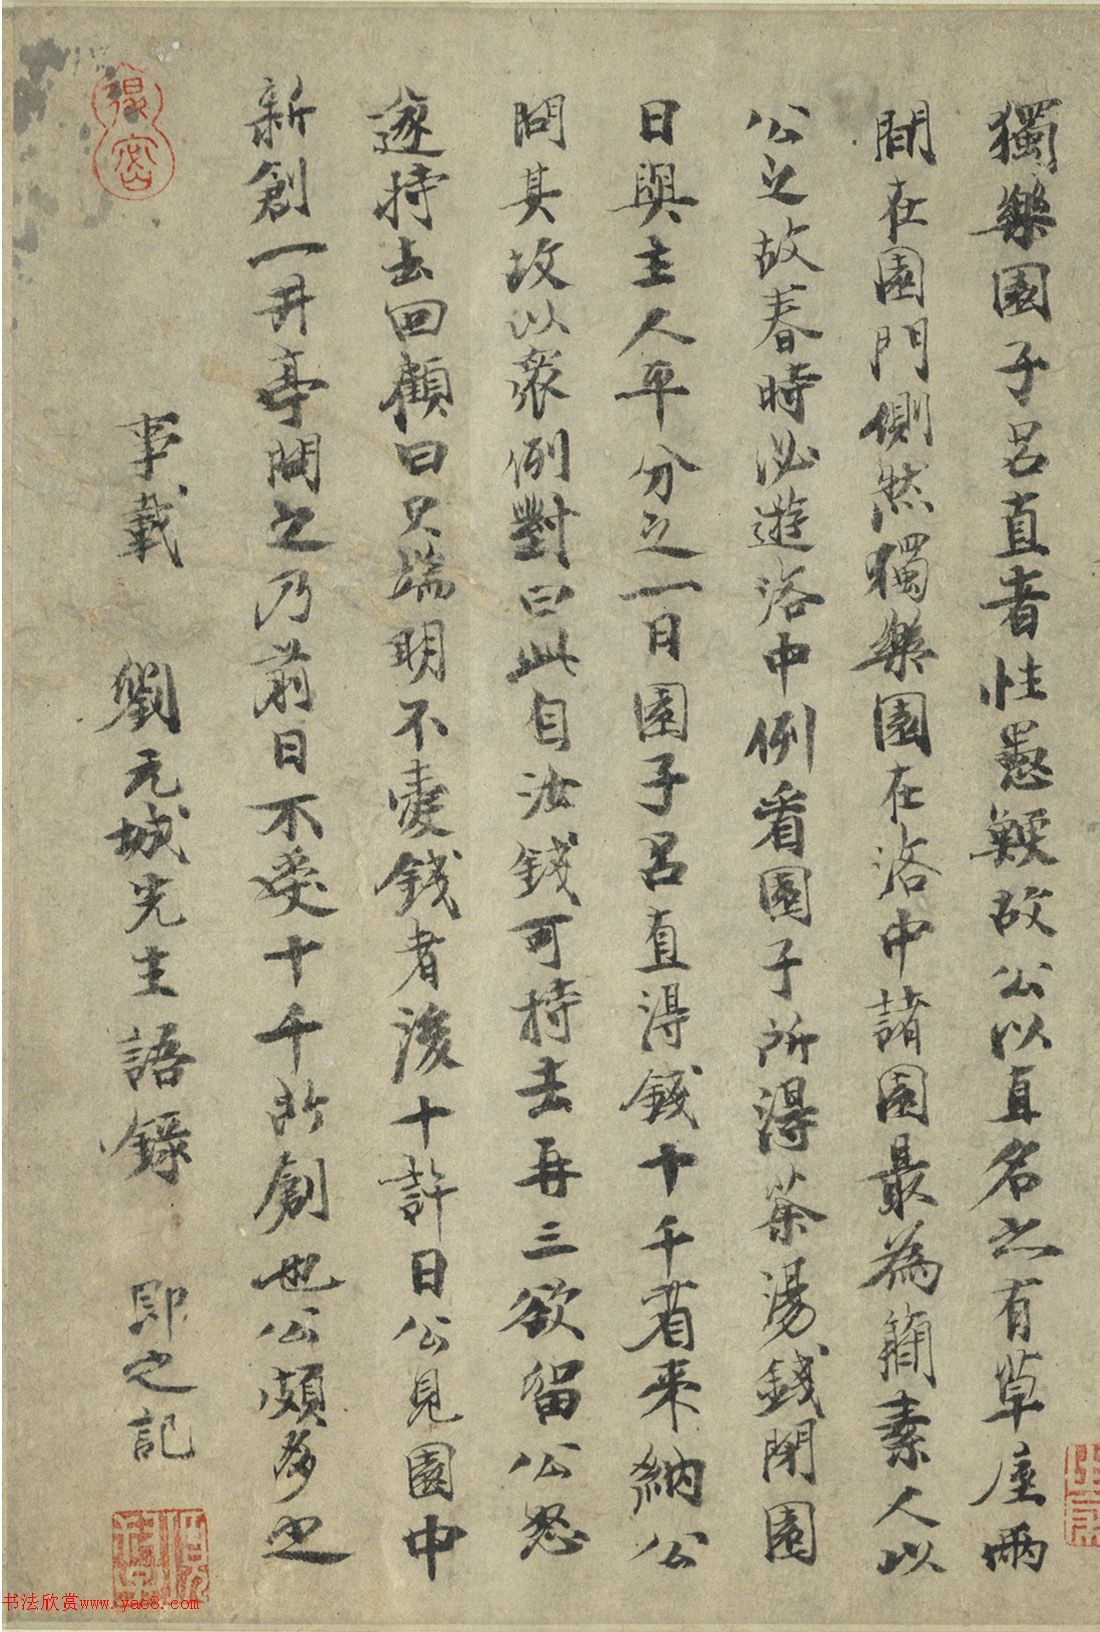 獨樂園子呂直者性愚鯁故公以直名之有草屋兩
間在園門側然獨樂園在洛中諸園最為簡素人以
公之故春時必遊洛中例看園子所得茶湯錢閉園
日與主人平分之一日園子呂直得錢十千省来納公
問其故以衆例對曰此自汝錢可持去再三欲留公怒
遂持去回顧曰只端明不愛錢者後十許日公見園中
新創一井亭問之乃前日不受十千所創也公頗多之
事載 劉元城先生語錄 即之記
书法欣赏www.yac8.com